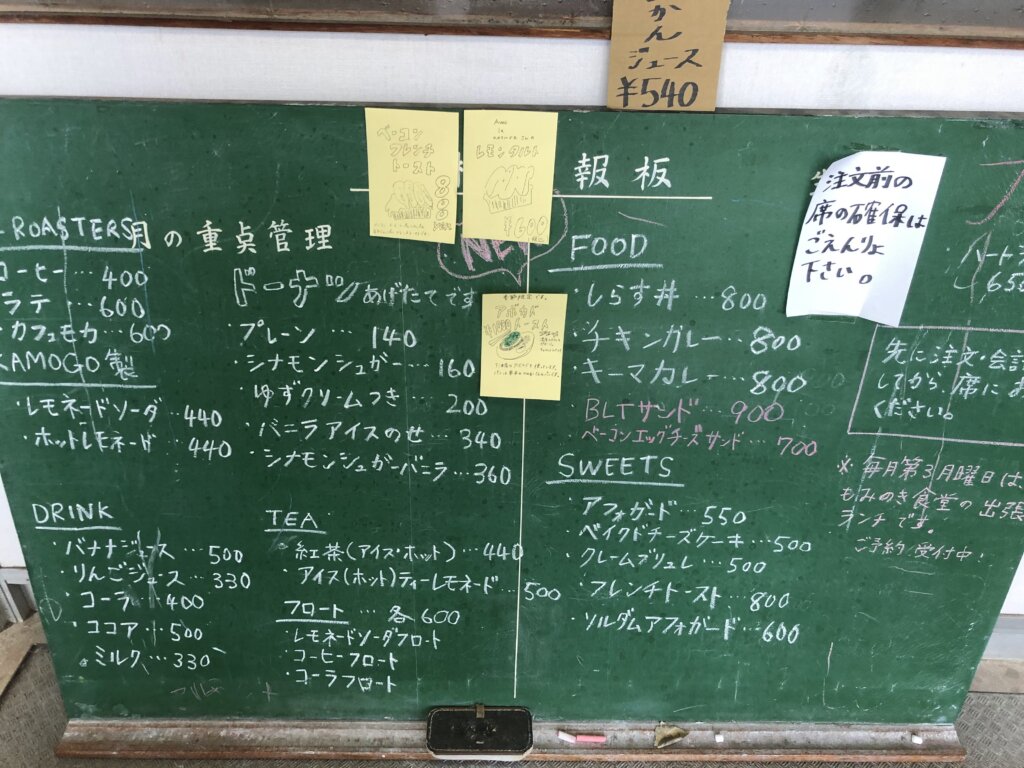 かん
ジュース
¥540
報板
月の重点管理
ROASTERS
コーヒー…400
ラテ 600
・カフェモカ 600
KAMOGO製
・レモネードソーダ…440
・ホットレモネード 440
ドーナツ あげたてです
プレーン … 140
・シナモンシュガー…160
ゆずクリームつき … 200
・バニラアイスのせ … 340
・シナモンシュガーバニラ…360
DRINK
・バナナジュース 500
・りんごジュース…330
・コーラ 400
・ココア 500
・ミルク…330
TEA
・紅茶(アイス・ホット)…440
・アイス(ホット)ティーレモネード…500
フロート … 各600
・レモネードソーダフロート
・コーヒーフロート
・コーラフロート
ベーコン
フレンチ
トースト
800
レモンタルト
¥600
NEW
季節限定です。
アボカド
トースト
FOOD
・しらす丼 …800
・チキンカレー…800
・キーマカレー…800
・BLTサンド…900
・ベーコンエッグチーズサンド…700
SWEETS
・アフォガード…550
・ベイクドチーズケーキ…500
・クレームブリュレ…500
・フレンチトースト…800
・ソルダムアフォガード…600
注文前の
席の確保は
ごえんりょ
下さい。
先に注文・会計
してから席にお
ください。
※毎月第3月曜日は
もみのき食堂の出張
ランチです
ご予約受付中!